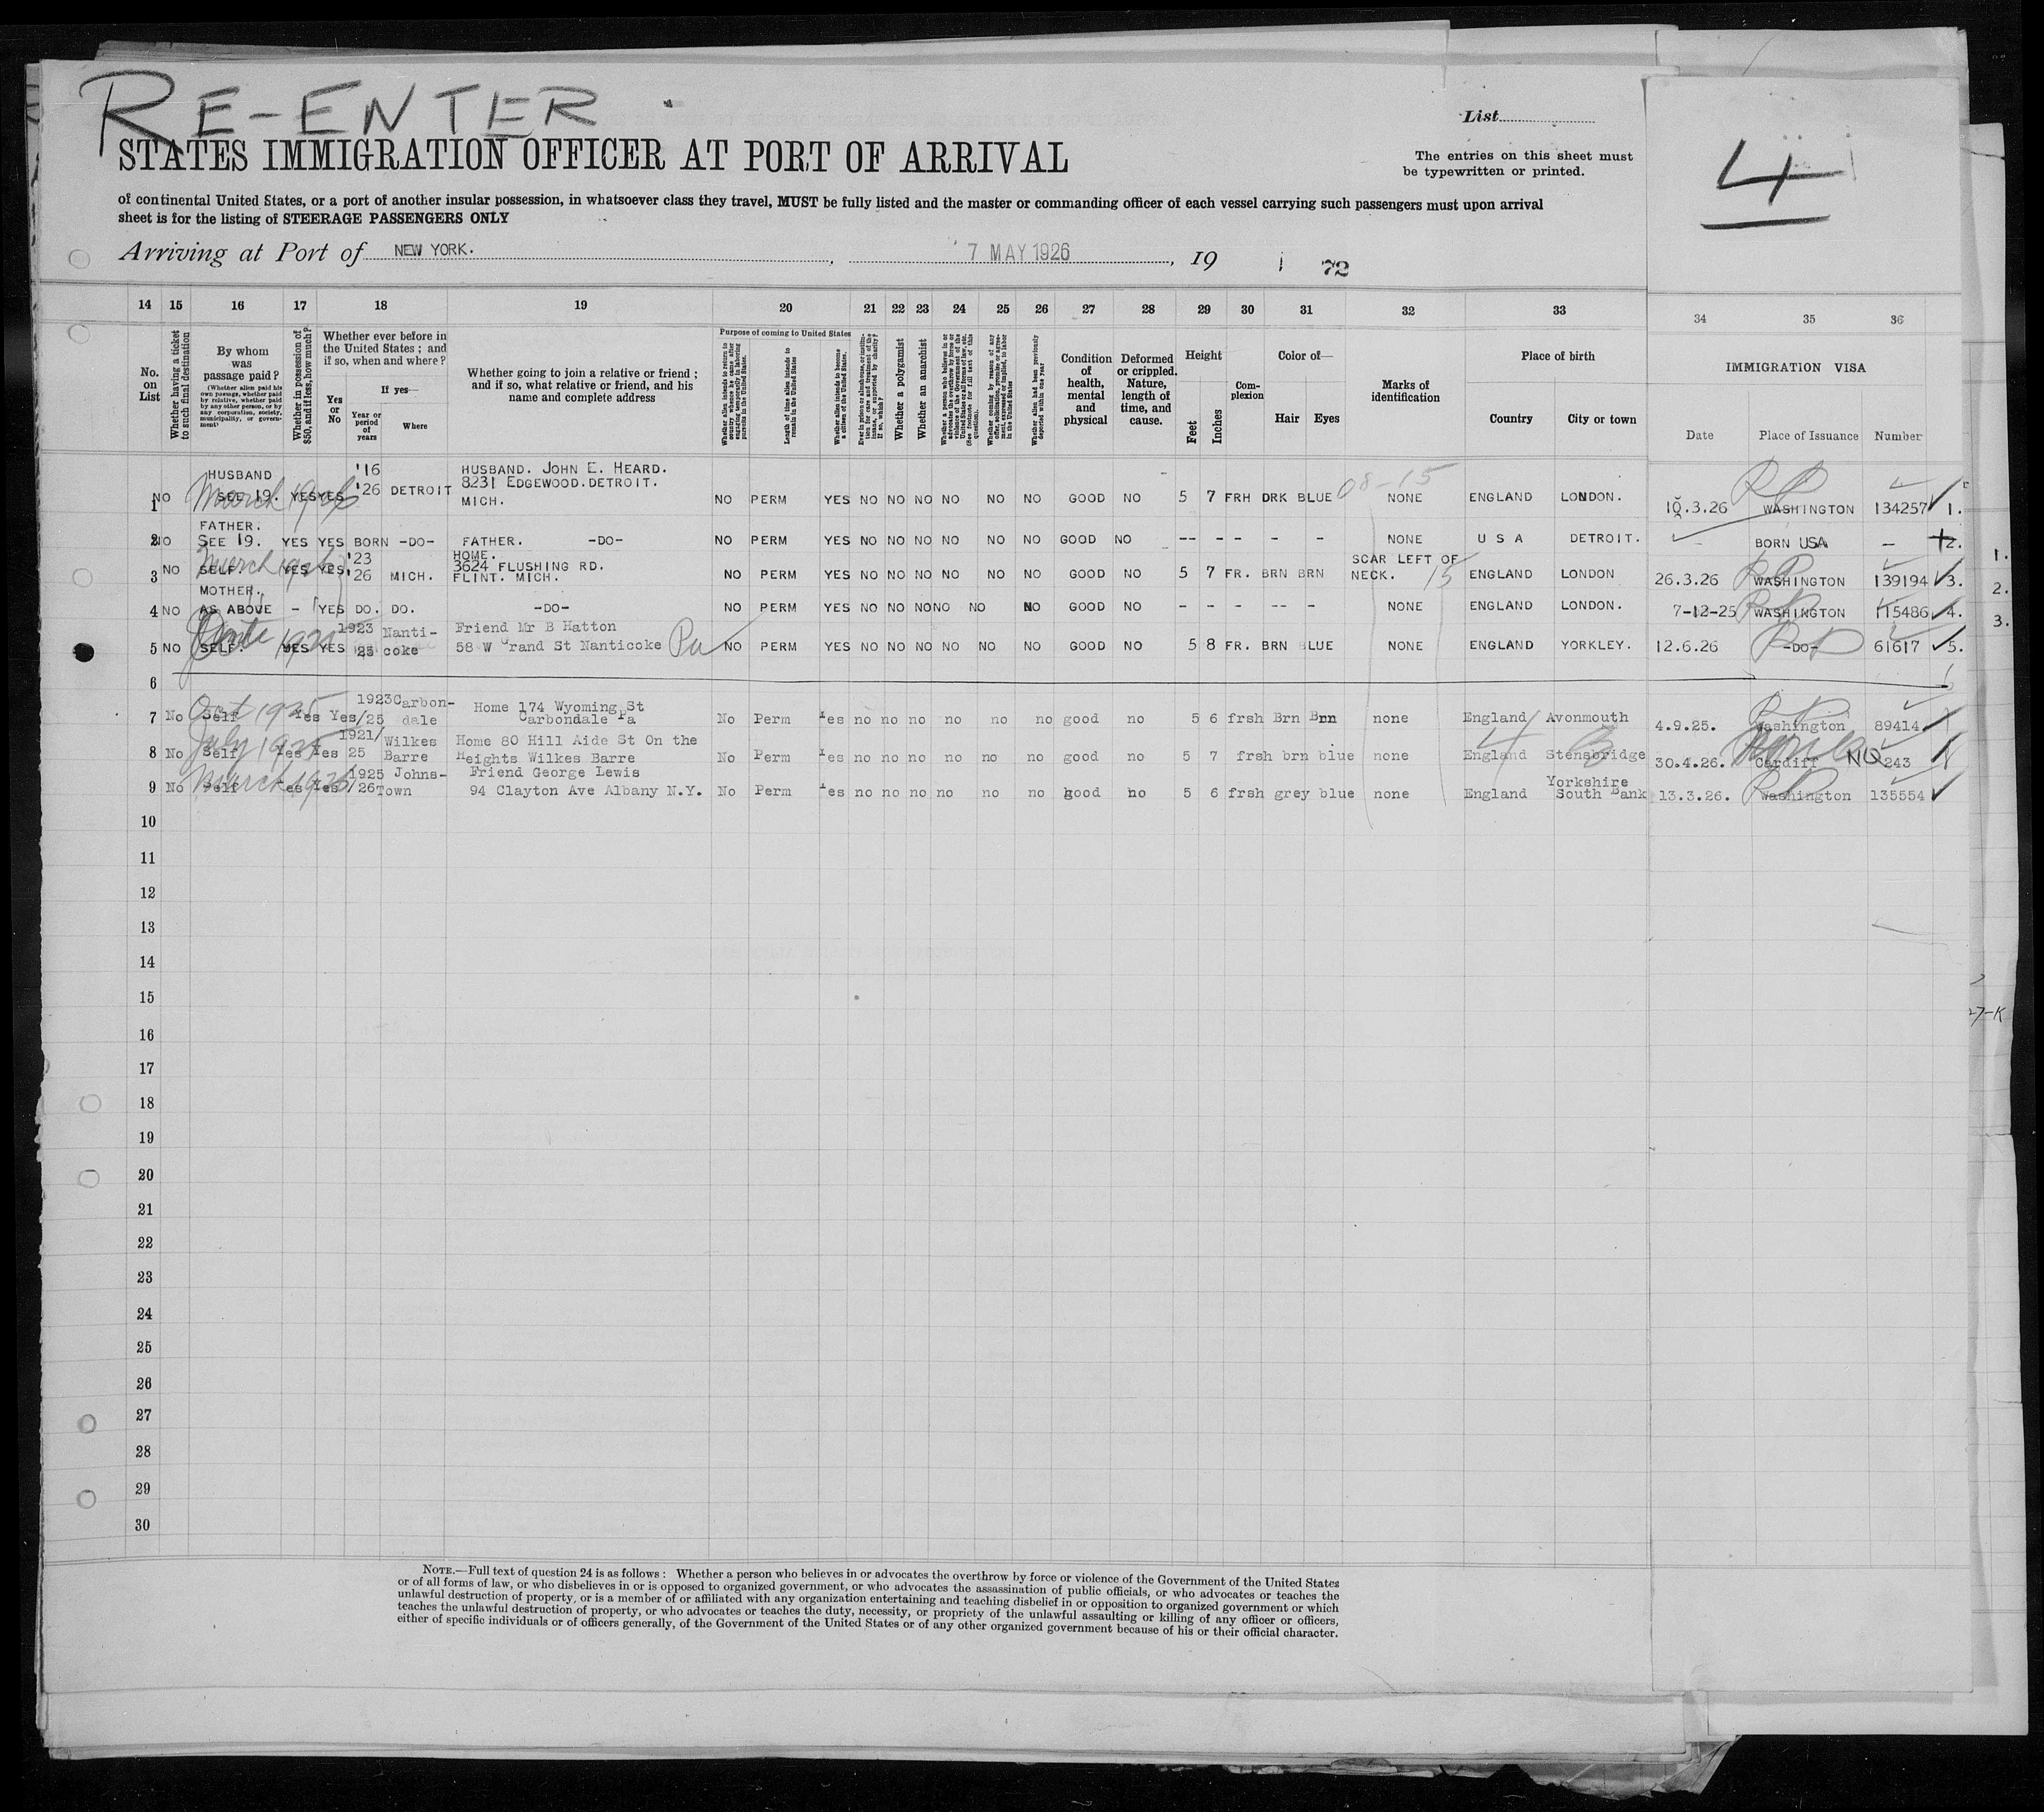 RE-ENTER
STATES IMMIGRATION OFFICER AT PORT OF ARRIVAL
List
The entries on this sheet must
be typewritten or printed.
4
of continental United States, or a port of another insular possession, in whatsoever class they travel, MUST be fully listed and the master or commanding officer of each vessel carrying such passengers must upon arrival
sheet is for the listing of STEERAGE PASSENGERS ONLY
Arriving at Port of NEW YORK. , 7 MAY 1926 , 19 1 72
14 15 16 17 18 19 20 21 22 23 24 25 26 27 28 29 30 31 32 33 34 35 36
No. on List
Whether having a ticket to such final destination
By whom was passage paid?
(Whether alien paid his own passage, whether paid by relative, whether paid by any other person, or by any corporation, society, municipality, or government)
Whether in possession of $50, and if less, how much?
Whether ever before in the United States; and if so, when and where?
Yes or No
If yes—
Year or period of years
Where
Whether going to join a relative or friend; and if so, what relative or friend, and his name and complete address
Purpose of coming to United States
Whether alien intends to return to country whence he came after engaging temporarily in laboring pursuits in the United States.
Length of time alien intends to remain in the United States
Whether alien intends to become a citizen of the United States.
Whether a polygamist
Whether an anarchist
Whether alien had been previously deported within one year
Condition of health, mental and physical
Deformed or crippled. Nature, length of time, and cause.
Height
Feet
Inches
Complexion
Color of—
Hair Eyes
Marks of identification
Place of birth
Country City or town
IMMIGRATION VISA
Date Place of Issuance Number
1 NO HUSBAND SEE 19. YES YES '16 '26 DETROIT HUSBAND. JOHN E. HEARD. 8231 EDGEWOOD. DETROIT. MICH. NO PERM YES NO NO NO NO NO NO GOOD NO 5 7 FRH DRK BLUE NONE ENGLAND LONDON. 10.3.26 WASHINGTON 134257 1.
March 1926 08-15 RP
2 NO FATHER. SEE 19. YES YES BORN -DO- FATHER. -DO- NO PERM YES NO NO NO NO NO NO GOOD NO -- - - - - NONE U S A DETROIT. - BORN USA - 2.
3 NO SELF. YES YES '23 '26 MICH. HOME. 3624 FLUSHING RD. FLINT. MICH. NO PERM YES NO NO NO NO NO NO GOOD NO 5 7 FR. BRN BRN SCAR LEFT OF NECK. ENGLAND LONDON 26.3.26 WASHINGTON 139194 3.
March 1926 15 RP
4 NO MOTHER. AS ABOVE - YES DO. DO. -DO- NO PERM YES NO NO NO NO NO NO GOOD NO - - - -- - NONE ENGLAND LONDON. 7-12-25 WASHINGTON 115486 4.
RP
5 NO SELF. YES YES 1923 25 Nanti-coke Friend Mr B Hatton 58 W Grand St Nanticoke Pa NO PERM YES NO NO NO NO NO NO GOOD NO 5 8 FR. BRN BLUE NONE ENGLAND YORKLEY. 12.6.26 -DO- 61617 5.
RP
6
7 No Self Yes Yes 1923 /25 Carbon-dale Home 174 Wyoming St Carbondale Pa No Perm Yes no no no no no no good no 5 6 frsh Brn Brn none England Avonmouth 4.9.25. Washington 89414
Oct 1925 RP
8 No Self Yes Yes 1921/ 25 Wilkes Barre Home 80 Hill Aide St On the Heights Wilkes Barre No Perm Yes no no no no no no good no 5 7 frsh brn blue none England Stensbridge 30.4.26. Cardiff NQ 243
July 1925 4 B
9 No Self Yes Yes 1925 /26 Johns-Town Friend George Lewis 94 Clayton Ave Albany N.Y. No Perm Yes no no no no no no good no 5 6 frsh grey blue none England Yorkshire South Bank 13.3.26. Washington 135554
March 1926 RP
10
11
12
13
14
15
16
17
18
19
20
21
22
23
24
25
26
27
28
29
30
1.
2.
3.
27-K
NOTE.—Full text of question 24 is as follows: Whether a person who believes in or advocates the overthrow by force or violence of the Government of the United States
or of all forms of law, or who disbelieves in or is opposed to organized government, or who advocates the assassination of public officials, or who advocates or teaches the
unlawful destruction of property, or is a member of or affiliated with any organization entertaining and teaching disbelief in or opposition to organized government or which
teaches the unlawful destruction of property, or who advocates or teaches the duty, necessity, or propriety of the unlawful assaulting or killing of any officer or officers,
either of specific individuals or of officers generally, of the Government of the United States or of any other organized government because of his or their official character.